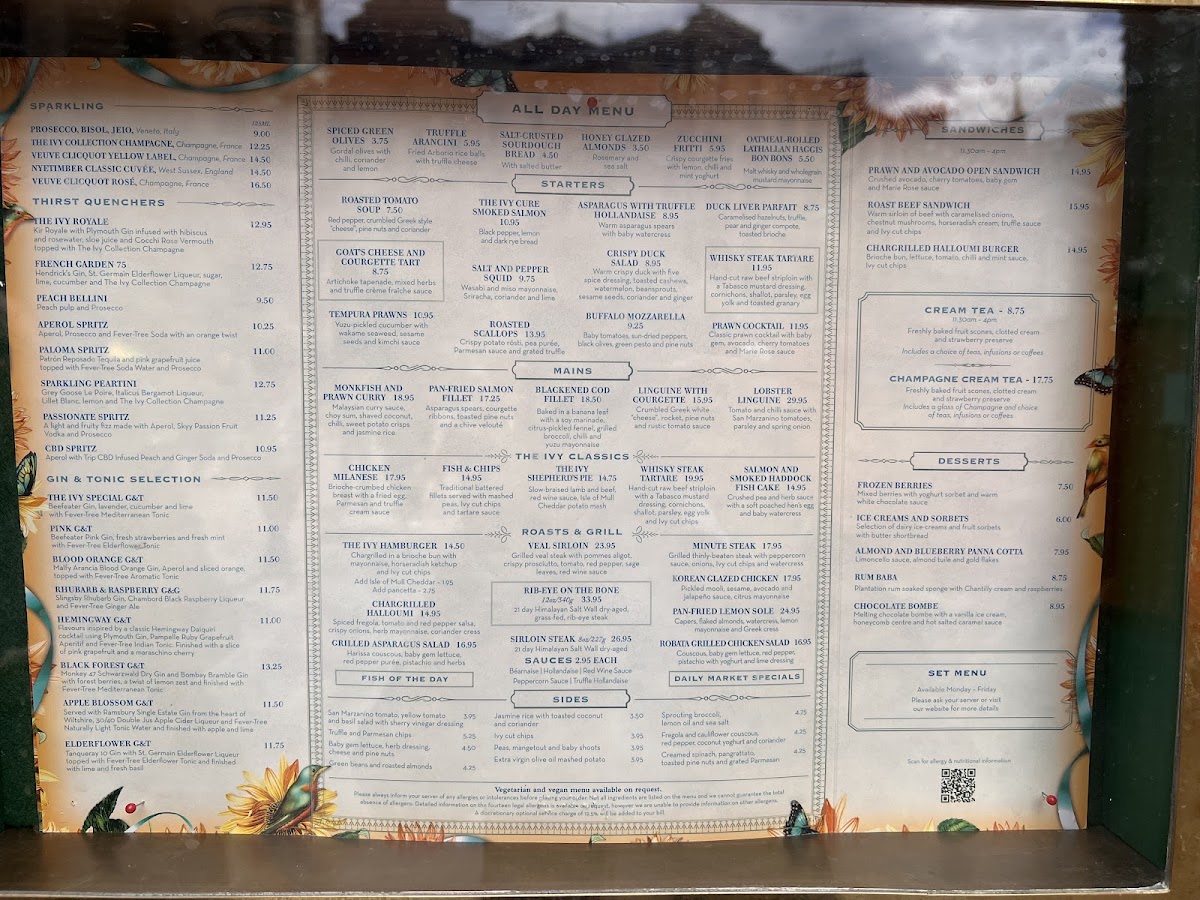 SPARKLING
125ML
PROSECCO, BISOL, JEIO, Veneto, Italy 9.00
THE IVY COLLECTION CHAMPAGNE, Champagne, France 12.25
VEUVE CLICQUOT YELLOW LABEL, Champagne, France 14.50
NYETIMBER CLASSIC CUVÉE, West Sussex, England 14.50
VEUVE CLICQUOT ROSÉ, Champagne, France 16.50
THIRST QUENCHERS
THE IVY ROYALE 12.95
Kir Royale with Plymouth Gin infused with hibiscus
and rosewater, sloe juice and Cocchi Rosa Vermouth
topped with The Ivy Collection Champagne
FRENCH GARDEN 75 12.75
Hendrick's Gin, St. Germain Elderflower Liqueur, sugar,
lime, cucumber and The Ivy Collection Champagne
PEACH BELLINI 9.50
Peach pulp and Prosecco
APEROL SPRITZ 10.25
Aperol, Prosecco and Fever-Tree Soda with an orange twist
PALOMA SPRITZ 11.00
Patrón Reposado Tequila and pink grapefruit juice
topped with Fever-Tree Soda Water and Prosecco
SPARKLING PEARTINI 12.75
Grey Goose Le Poire, Italicus Bergamot Liqueur,
Lillet Blanc, lemon and The Ivy Collection Champagne
PASSIONATE SPRITZ 11.25
A light and fruity fizz made with Aperol, Skyy Passion Fruit
Vodka and Prosecco
CBD SPRITZ 10.95
Aperol with Trip CBD Infused Peach and Ginger Soda and Prosecco
GIN & TONIC SELECTION
THE IVY SPECIAL G&T 11.50
Beefeater Gin, lavender, cucumber and lime
with Fever-Tree Mediterranean Tonic
PINK G&T 11.00
Beefeater Pink Gin, fresh strawberries and fresh mint
with Fever-Tree Elderflower Tonic
BLOOD ORANGE G&T 11.50
Malfy Arancia Blood Orange Gin, Aperol and sliced orange,
topped with Fever-Tree Aromatic Tonic
RHUBARB & RASPBERRY G&G 11.75
Slingsby Rhubarb Gin, Chambord Black Raspberry Liqueur
and Fever-Tree Ginger Ale
HEMINGWAY G&T 11.00
Flavours inspired by a classic Hemingway Daiquiri
cocktail using Plymouth Gin, Pampelle Ruby Grapefruit
Aperitif and Fever-Tree Indian Tonic. Finished with a slice
of pink grapefruit and a maraschino cherry
BLACK FOREST G&T 13.25
Monkey 47 Schwarzwald Dry Gin and Bombay Bramble Gin
with forest berries, a twist of lemon zest and finished with
Fever-Tree Mediterranean Tonic
APPLE BLOSSOM G&T 11.50
Served with Ramsbury Single Estate Gin from the heart of
Wiltshire, 30/40 Double Jus Apple Cider Liqueur and Fever-Tree
Naturally Light Tonic Water and finished with apple and lime
ELDERFLOWER G&T 11.75
Tanqueray 10 Gin with St. Germain Elderflower Liqueur
topped with Fever-Tree Elderflower Tonic and finished
with lime and fresh basil
ALL DAY MENU
SPICED GREEN
OLIVES 3.75
Gordal olives with
chilli, coriander
and lemon
TRUFFLE
ARANCINI 5.95
Fried Arborio rice balls
with truffle cheese
SALT-CRUSTED
SOURDOUGH
BREAD 4.50
With salted butter
HONEY GLAZED
ALMONDS 3.50
Rosemary and
sea salt
ZUCCHINI
FRITTI 5.95
Crispy courgette fries
with lemon, chilli and
mint yoghurt
OATMEAL-ROLLED
LATHALLAN HAGGIS
BON BONS 5.50
Malt whisky and wholegrain
mustard mayonnaise
STARTERS
ROASTED TOMATO
SOUP 7.50
Red pepper, crumbled Greek style
"cheese", pine nuts and coriander
THE IVY CURE
SMOKED SALMON
10.95
Black pepper, lemon
and dark rye bread
ASPARAGUS WITH TRUFFLE
HOLLANDAISE 8.95
Warm asparagus spears
with baby watercress
DUCK LIVER PARFAIT 8.75
Caramelised hazelnuts, truffle,
pear and ginger compote,
toasted brioche
GOAT'S CHEESE AND
COURGETTE TART
8.75
Artichoke tapenade, mixed herbs
and truffle crème fraîche sauce
SALT AND PEPPER
SQUID 9.75
Wasabi and miso mayonnaise,
Sriracha, coriander and lime
CRISPY DUCK
SALAD 8.95
Warm crispy duck with five
spice dressing, toasted cashews,
watermelon, beansprouts,
sesame seeds, coriander and ginger
WHISKY STEAK TARTARE
11.95
Hand-cut raw beef striploin with
a Tabasco mustard dressing,
cornichons, shallot, parsley, egg
yolk and toasted granary
TEMPURA PRAWNS 10.95
Yuzu-pickled cucumber with
wakame seaweed, sesame
seeds and kimchi sauce
ROASTED
SCALLOPS 13.95
Crispy potato rösti, pea purée,
Parmesan sauce and grated truffle
BUFFALO MOZZARELLA
9.25
Baby tomatoes, sun-dried peppers,
black olives, green pesto and pine nuts
PRAWN COCKTAIL 11.95
Classic prawn cocktail with baby
gem, avocado, cherry tomatoes
and Marie Rose sauce
MAINS
MONKFISH AND
PRAWN CURRY 18.95
Malaysian curry sauce,
choy sum, shaved coconut,
chilli, sweet potato crisps
and jasmine rice
PAN-FRIED SALMON
FILLET 17.25
Asparagus spears, courgette
ribbons, toasted pine nuts
and a chive velouté
BLACKENED COD
FILLET 18.50
Baked in a banana leaf
with a soy marinade,
citrus-pickled fennel, grilled
broccoli, chilli and
yuzu mayonnaise
LINGUINE WITH
COURGETTE 15.95
Crumbled Greek white
"cheese", rocket, pine nuts
and rustic tomato sauce
LOBSTER
LINGUINE 29.95
Tomato and chilli sauce with
San Marzanino tomatoes,
parsley and spring onion
THE IVY CLASSICS
CHICKEN
MILANESE 17.95
Brioche-crumbed chicken
breast with a fried egg,
Parmesan and truffle
cream sauce
FISH & CHIPS
14.95
Traditional battered
fillets served with mashed
peas, Ivy cut chips
and tartare sauce
THE IVY
SHEPHERD'S PIE 14.75
Slow-braised lamb and beef,
red wine sauce, Isle of Mull
Cheddar potato mash
WHISKY STEAK
TARTARE 19.95
Hand-cut raw beef striploin
with a Tabasco mustard
dressing, cornichons,
shallot, parsley, egg yolk
and Ivy cut chips
SALMON AND
SMOKED HADDOCK
FISH CAKE 14.95
Crushed pea and herb sauce
with a soft poached hen's egg
and baby watercress
ROASTS & GRILL
THE IVY HAMBURGER 14.50
Chargrilled in a brioche bun with
mayonnaise, horseradish ketchup
and Ivy cut chips
Add Isle of Mull Cheddar - 1.95
Add pancetta - 2.75
CHARGRILLED
HALLOUMI 14.95
Spiced fregola, tomato and red pepper salsa,
crispy onions, herb mayonnaise, coriander cress
GRILLED ASPARAGUS SALAD 16.95
Harissa couscous, baby gem lettuce,
red pepper purée, pistachio and herbs
FISH OF THE DAY
VEAL SIRLOIN 23.95
Grilled veal steak with pommes aligot,
crispy prosciutto, tomato, red pepper, sage
leaves, red wine sauce
RIB-EYE ON THE BONE
12oz/340g 33.95
21 day Himalayan Salt Wall dry-aged,
grass-fed, rib-eye steak
SIRLOIN STEAK 8oz/227g 26.95
21 day Himalayan Salt Wall dry-aged
SAUCES 2.95 EACH
Béarnaise | Hollandaise | Red Wine Sauce
Peppercorn Sauce | Truffle Hollandaise
MINUTE STEAK 17.95
Grilled thinly-beaten steak with peppercorn
sauce, onions, Ivy cut chips and watercress
KOREAN GLAZED CHICKEN 17.95
Pickled mooli, sesame, avocado and
jalapeño sauce, citrus mayonnaise
PAN-FRIED LEMON SOLE 24.95
Capers, flaked almonds, watercress, lemon
mayonnaise and Greek cress
ROBATA GRILLED CHICKEN SALAD 16.95
Couscous, baby gem lettuce, red pepper,
pistachio with yoghurt and lime dressing
DAILY MARKET SPECIALS
SIDES
San Marzanino tomato, yellow tomato
and basil salad with sherry vinegar dressing 3.95
Truffle and Parmesan chips 5.25
Baby gem lettuce, herb dressing,
cheese and pine nuts 4.50
Green beans and roasted almonds 4.25
Jasmine rice with toasted coconut
and coriander 3.50
Ivy cut chips 3.95
Peas, mangetout and baby shoots 3.95
Extra virgin olive oil mashed potato 3.95
Sprouting broccoli,
lemon oil and sea salt 4.75
Fregola and cauliflower couscous,
red pepper, coconut yoghurt and coriander 4.25
Creamed spinach, pangrattato,
toasted pine nuts and grated Parmesan 4.25
Vegetarian and vegan menu available on request.
Please always inform your server of any allergies or intolerances before placing your order. Not all ingredients are listed on the menu and we cannot guarantee the total
absence of allergens. Detailed information on the fourteen legal allergens is available on request, however we are unable to provide information on other allergens.
A discretionary optional service charge of 12.5% will be added to your bill.
SANDWICHES
11.30am - 4pm
PRAWN AND AVOCADO OPEN SANDWICH 14.95
Crushed avocado, cherry tomatoes, baby gem
and Marie Rose sauce
ROAST BEEF SANDWICH 15.95
Warm sirloin of beef with caramelised onions,
chestnut mushrooms, horseradish cream, truffle sauce
and Ivy cut chips
CHARGRILLED HALLOUMI BURGER 14.95
Brioche bun, lettuce, tomato, chilli and mint sauce,
Ivy cut chips
CREAM TEA - 8.75
11.30am - 4pm
Freshly baked fruit scones, clotted cream
and strawberry preserve
Includes a choice of teas, infusions or coffees
CHAMPAGNE CREAM TEA - 17.75
Freshly baked fruit scones, clotted cream
and strawberry preserve
Includes a glass of Champagne and choice
of teas, infusions or coffees
DESSERTS
FROZEN BERRIES 7.50
Mixed berries with yoghurt sorbet and warm
white chocolate sauce
ICE CREAMS AND SORBETS 6.00
Selection of dairy ice creams and fruit sorbets
with butter shortbread
ALMOND AND BLUEBERRY PANNA COTTA 7.95
Limoncello sauce, almond tuile and gold flakes
RUM BABA 8.75
Plantation rum soaked sponge with Chantilly cream and raspberries
CHOCOLATE BOMBE 8.95
Melting chocolate bombe with a vanilla ice cream,
honeycomb centre and hot salted caramel sauce
SET MENU
Available Monday - Friday
Please ask your server or visit
our website for more details
Scan for allergy & nutritional information